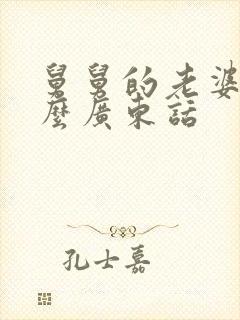 舅舅的老婆
麼廣東話
孔士嘉